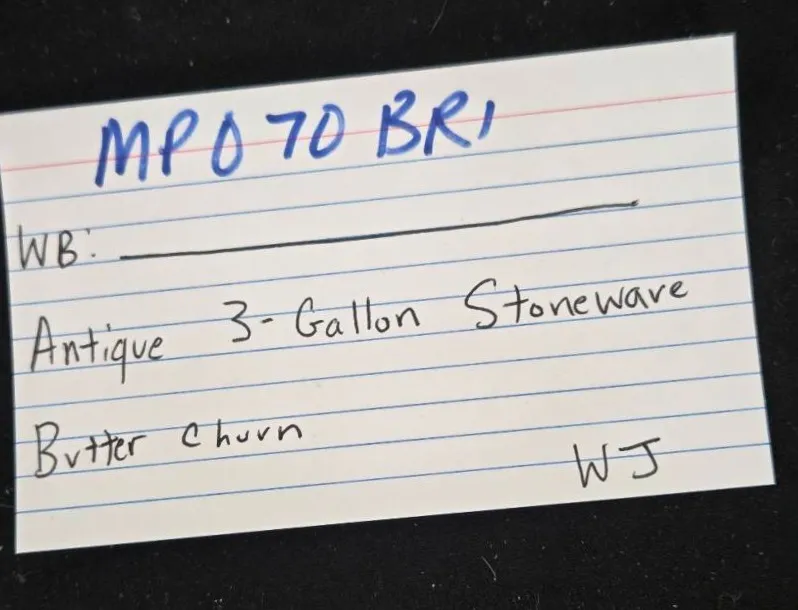 MP070BR1
WB: ______________
Antique 3-Gallon Stoneware
Butter Churn
WJ